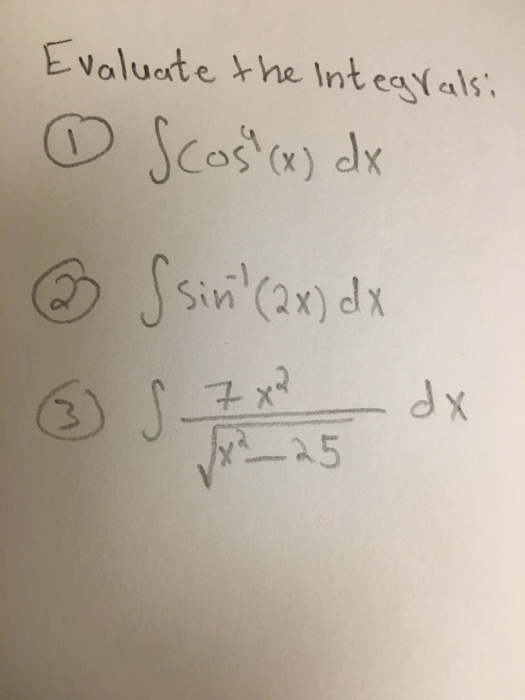 Evaluate the Integrals:
① ∫cos⁴(x) dx
② ∫sin⁻¹(2x) dx
③ ∫ 7x² / √(x²-25) dx